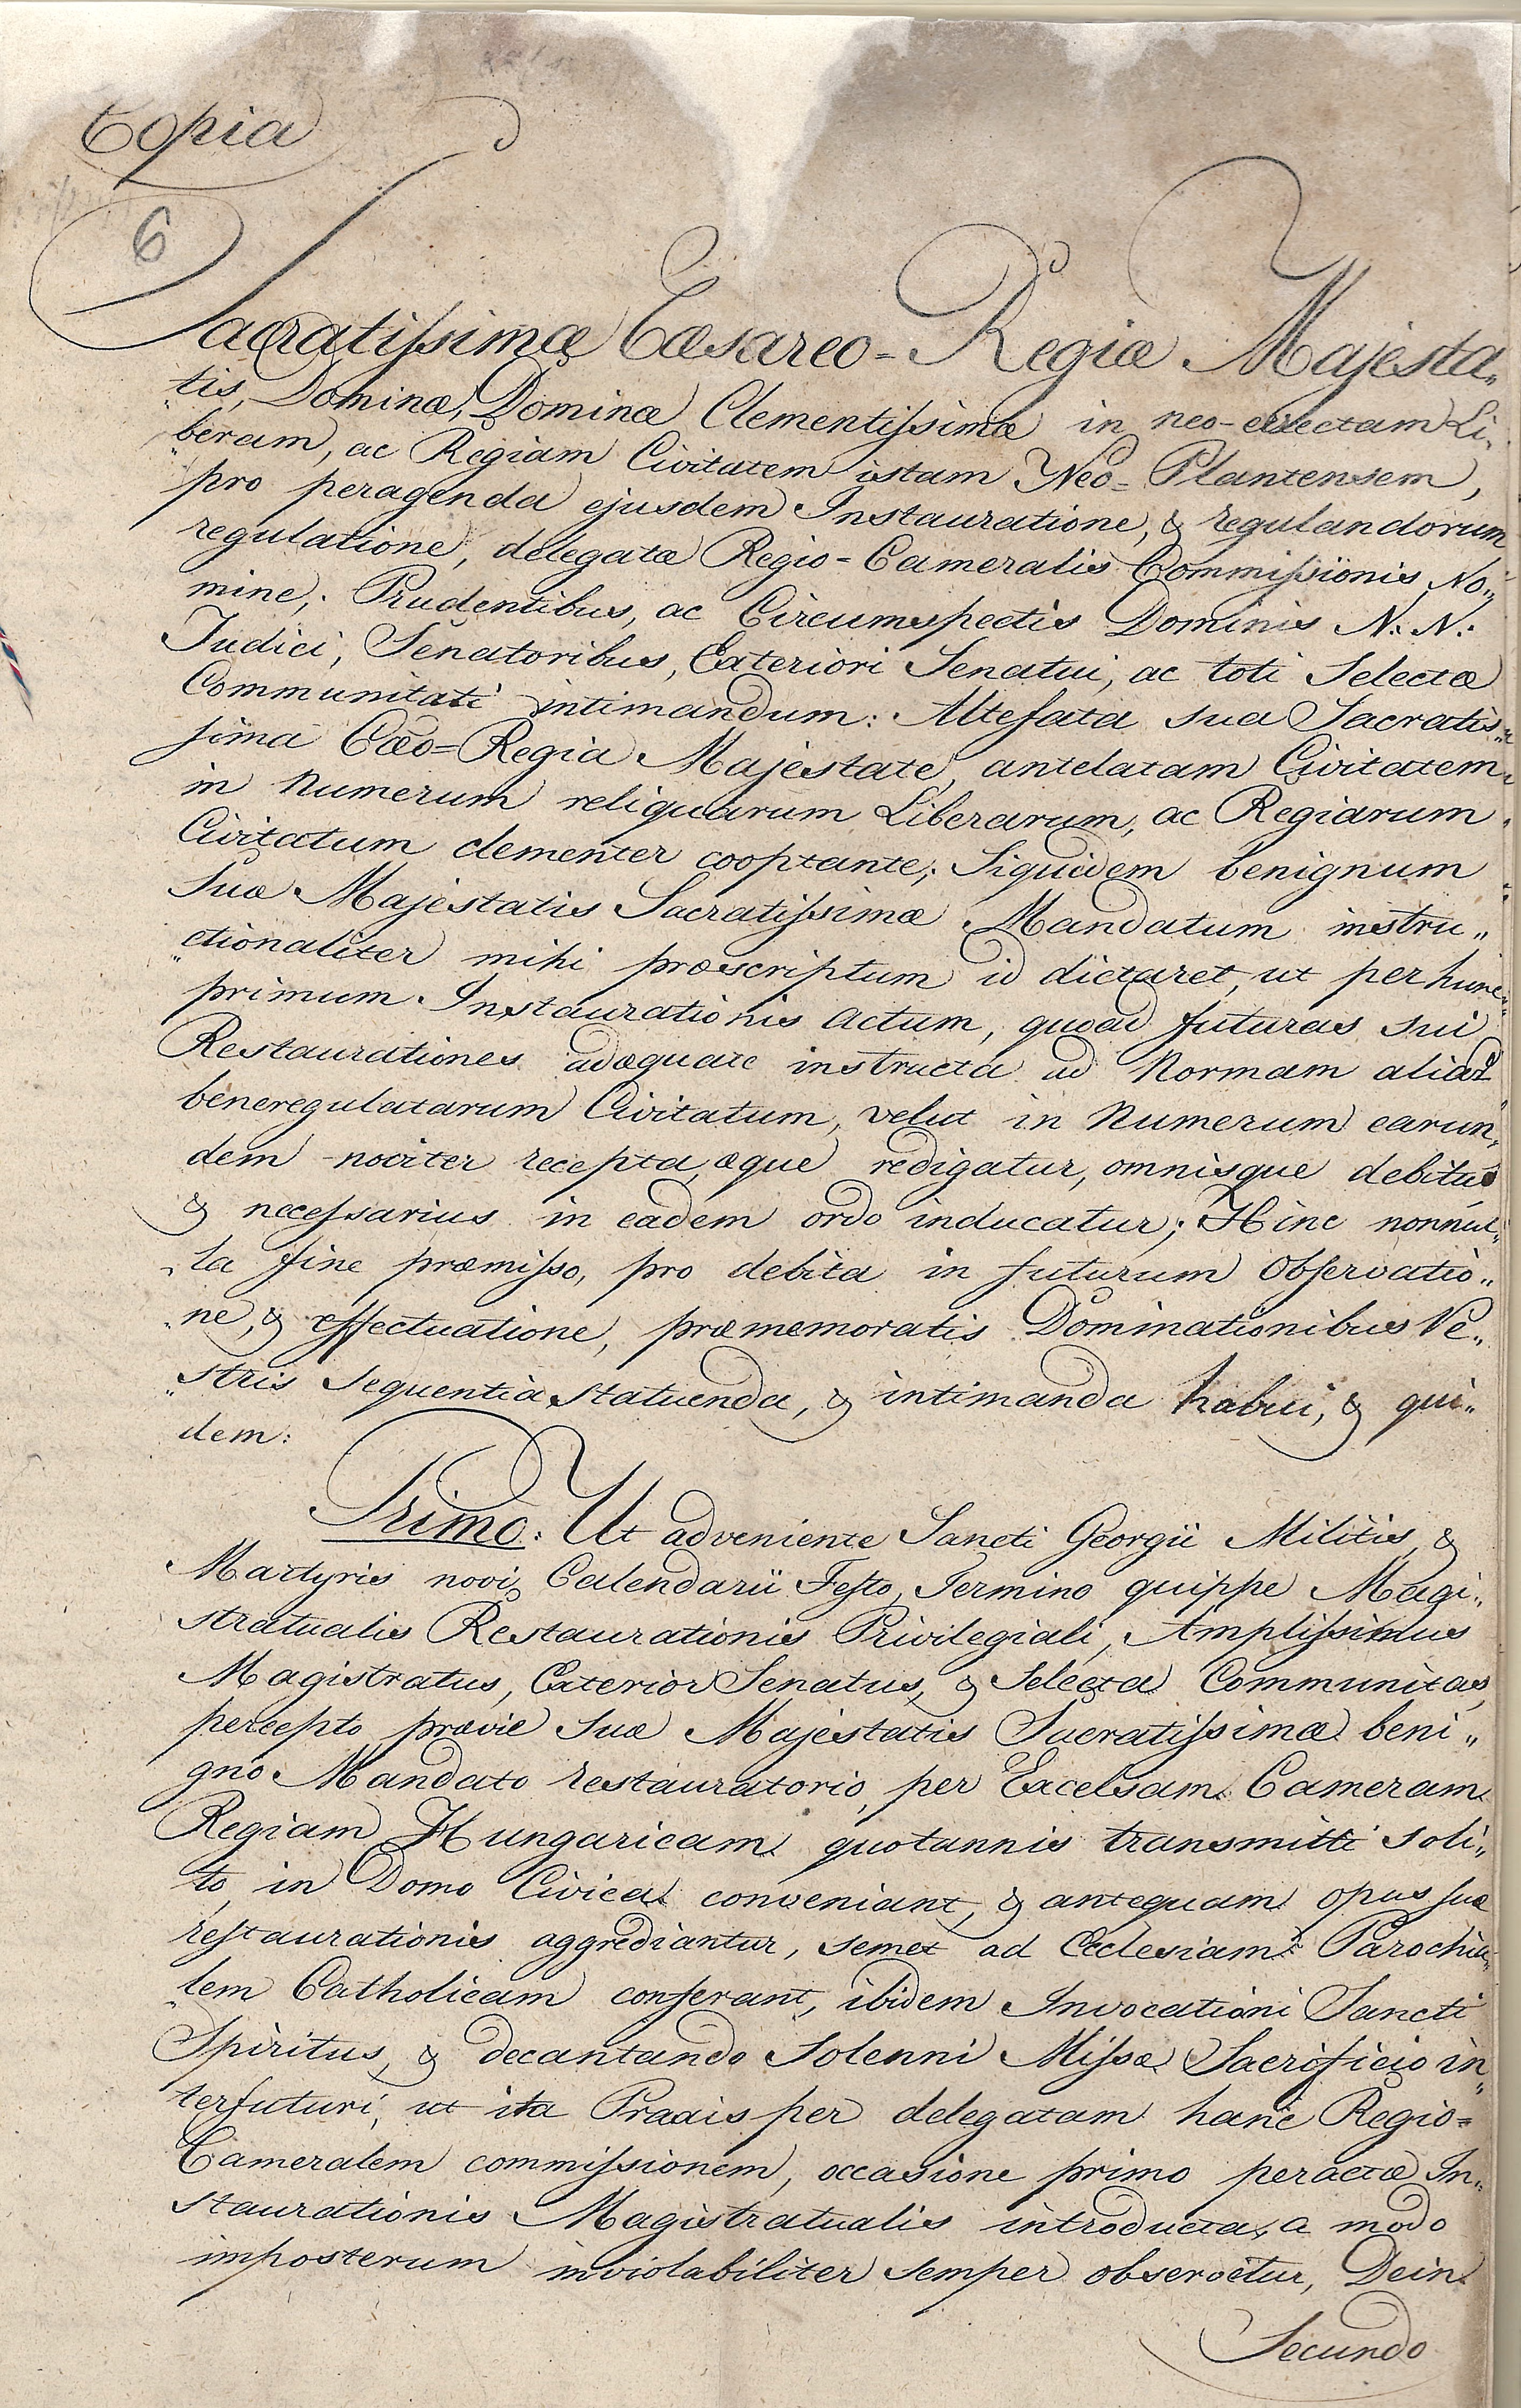 Copia
6
Sacratissimæ Cæsareo=Regiæ Majesta„
tis, Dominæ, Dominæ Clementissimæ in neo-erectam Li„
„beram, ac Regiam Civitatem istam Neo=Plantensem,
pro peragenda ejusdem Instauratione, & regulandorum
regulatione, delegatæ Regio=Cameralis Commissionis No„
mine; Prudentibus, ac Circumspectis Dominis N: N:
Judici, Senatoribus, Exteriori Senatui, ac toti Selectæ
Communitati intimandum: Altefata sua Sacratis„
sima Cæo=Regia Majestate, antelatam Civitatem
in Numerum reliquarum Liberarum, ac Regiarum
Civitatum clementer cooptante; Siquidem benignum
Suæ Majestatis Sacratissimæ Mandatum instru„
„ctionaliter mihi præscriptum id dictaret, ut per hunc
primum Instaurationis Actum, quoad futuras sui
Restaurationes adæquate instructa ad Normam aliar
beneregulatarum Civitatum, velut in Numerum earun„
dem noviter recepta, æque redigatur, omnisque debitus
& necessarius in eadem ordo inducatur; Hinc nonnul„
„la fine præmisso, pro debita in futurum Observatio„
„ne, & effectuatione, præmemoratis Dominationibus Ve„
„stris sequentia statuenda, & intimanda habui, & qui„
dem:
Primo: Ut adveniente Sancti Georgii Militis, &
Martyris novi Calendarii Festo, Termino quippe Magi„
stratualis Restaurationis Privilegiali, Amplissimus
Magistratus, Exterior Senatus, & Selecta Communitas,
percepto prævie Suæ Majestatis Sacratissimæ beni„
gno Mandato restauratorio, per Excelsam Cameram
Regiam Hungaricam quotannis transmitti soli„
to, in Domo Civica conveniant, & antequam opus suæ
restaurationis aggrediantur, semet ad Ecclesiam Parochia„
„lem Catholicam conferant, ibidem Invocationi Sancti
Spiritus, & decantando Solenni Missæ Sacrificio in„
terfuturi, ut ita Praxis per delegatam hanc Regio=
Cameralem commissionem, occasione primo peractæ In„
staurationis Magistratualis introducta, a modo
imposterum inviolabiliter semper observetur, Dein
Secundo